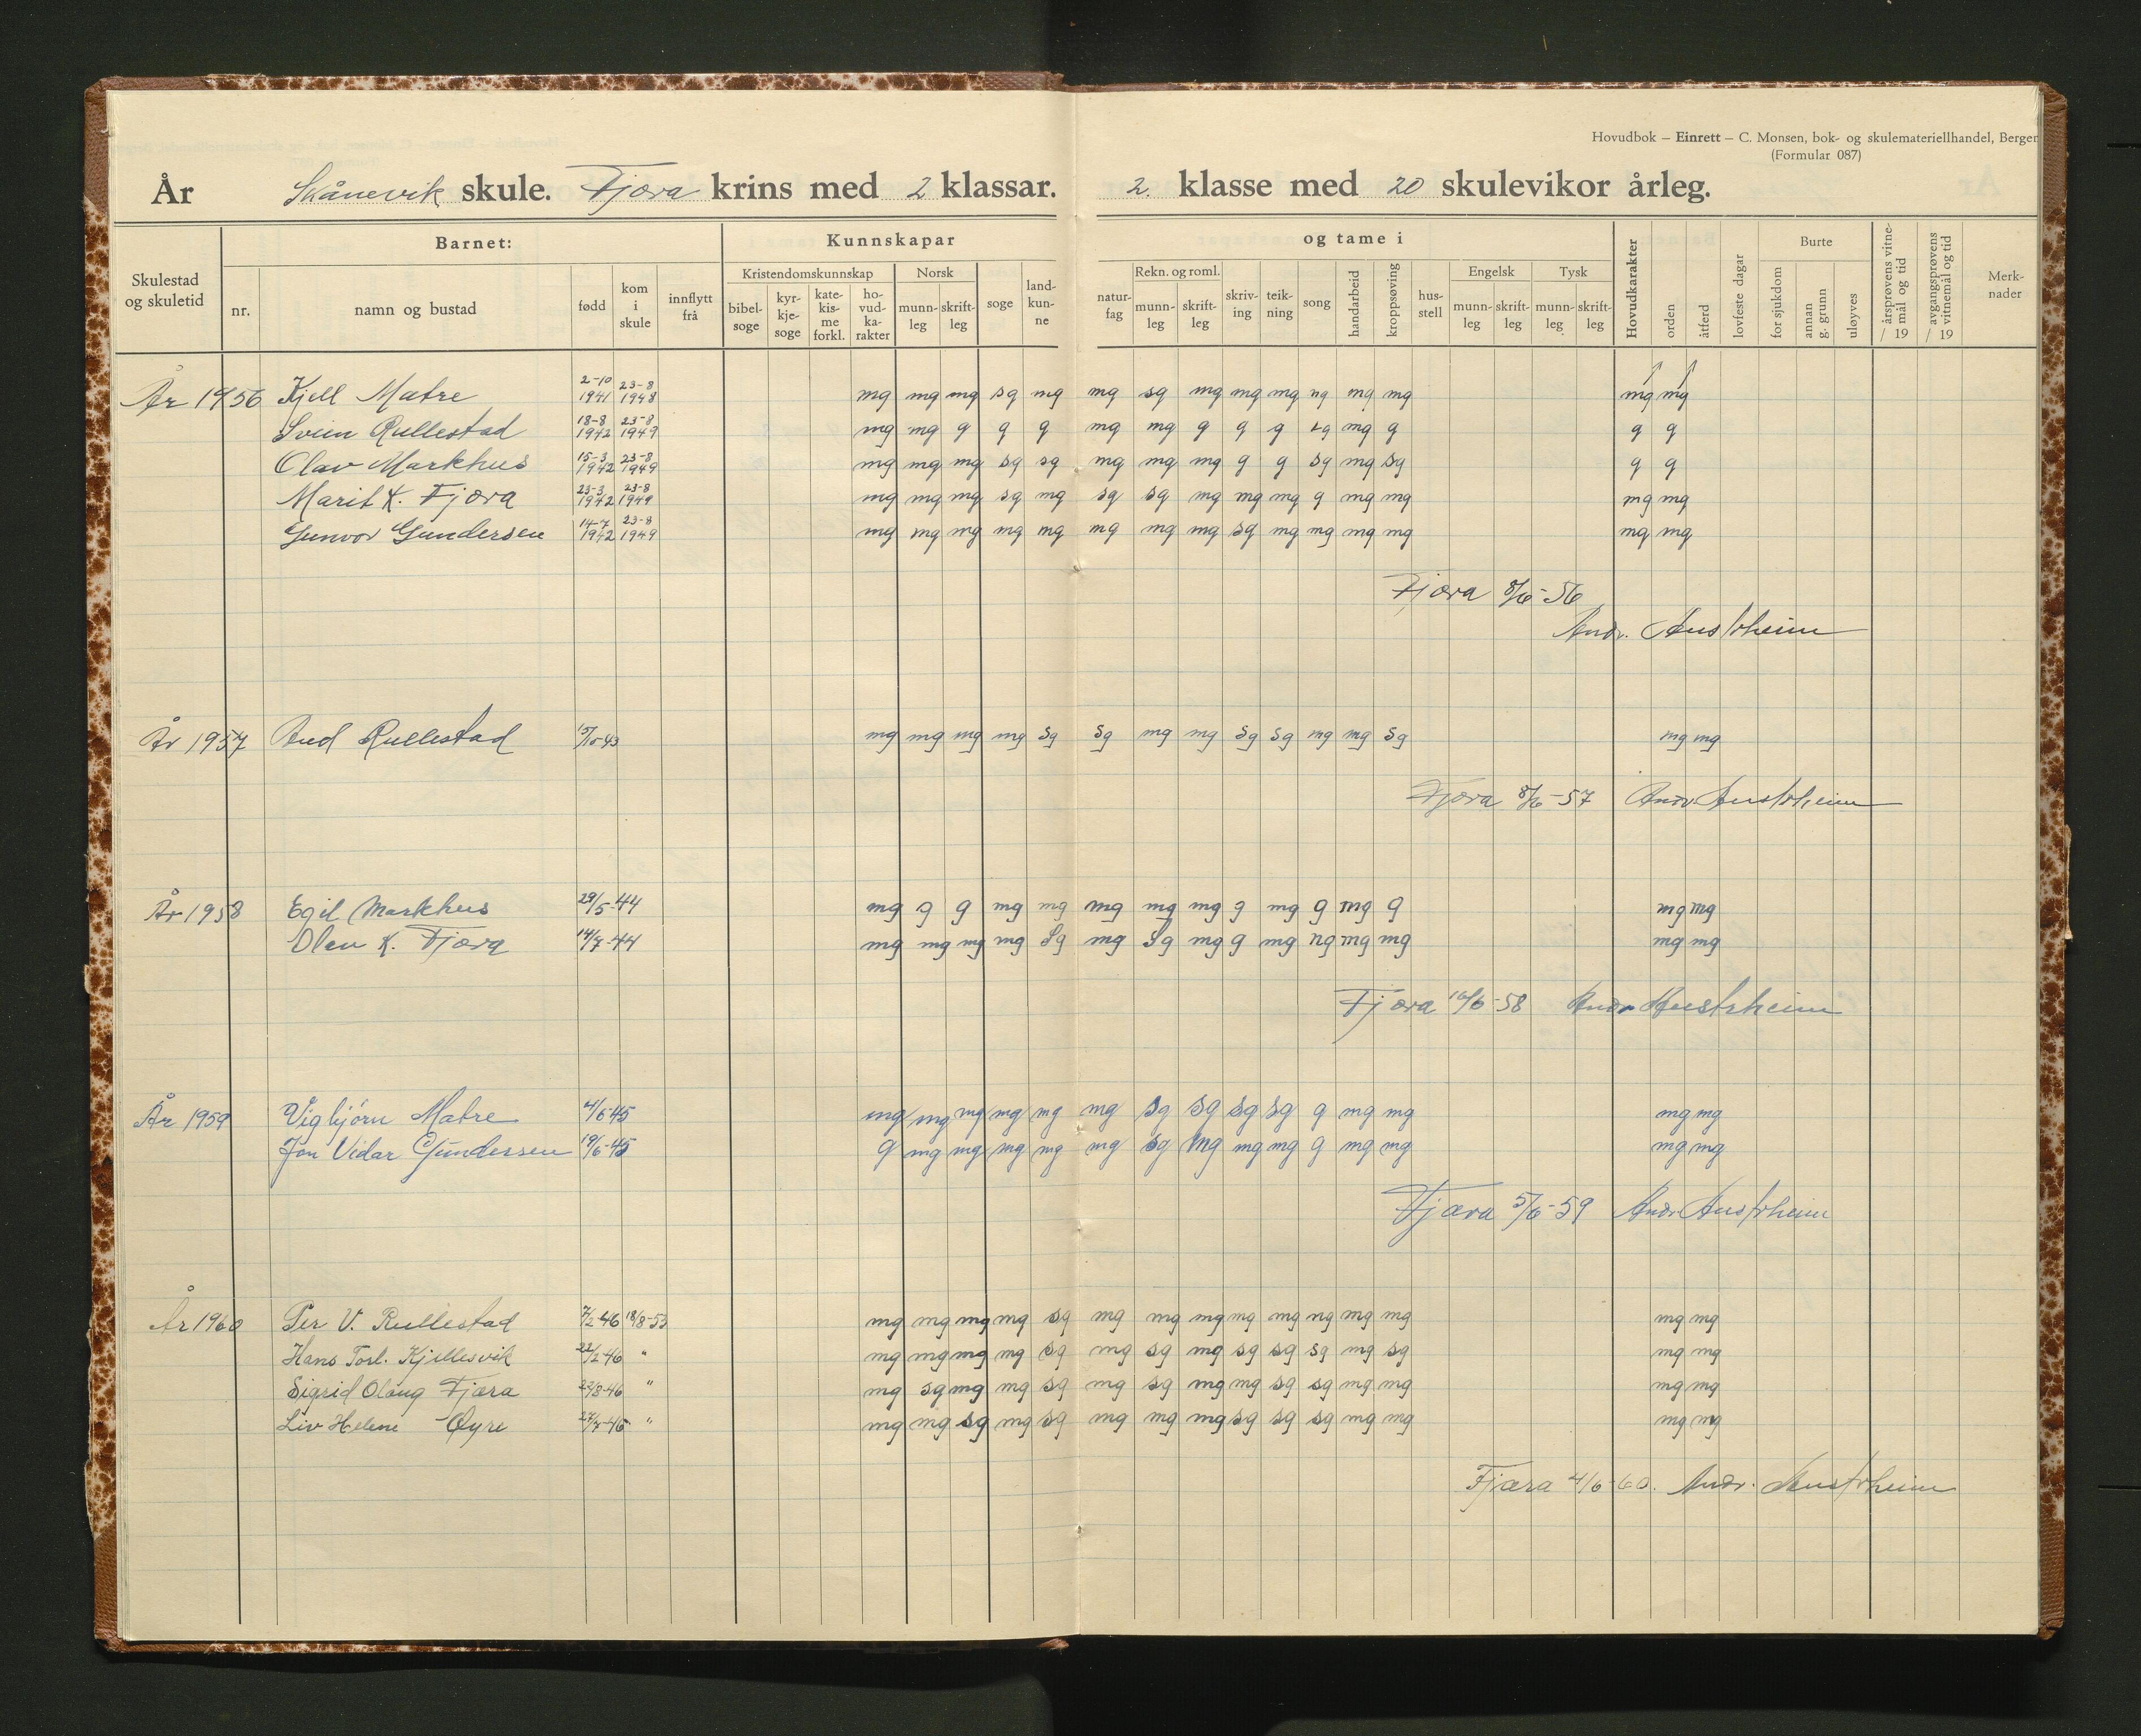 Hovudbok – Einrett – C. Monsen, bok- og skulemateriellhandel, Bergen
(Formular 087)
År Skånevik skule. Fjæra krins med 2 klassar. 2. klasse med 20 skulevikor årleg.
Skulestad og skuletid
Barnet:
nr.
namn og bustad
fødd
kom i skule
innflytt frå
Kunnskapar
Kristendomskunnskap
bibel-soge
kyr-kje-soge
kate-kis-me forkl.
ho-vud-ka-rakter
Norsk
munn-leg
skrift-leg
soge
land-kun-ne
og tame i
natur-fag
Rekn. og roml.
munn-leg
skrift-leg
skriv-ing
teik-ning
song
handarbeid
kroppsøving
hus-stell
Engelsk
munn-leg
skrift-leg
Tysk
munn-leg
skrift-leg
Hovudkarakter
orden
åtferd
lovfeste dagar
Burte
for sjukdom
annan g. grunn
uløyves
årsprøvens vitne-mål og tid / 19
avgangsprøvens vitnemål og tid / 19
Merk-nader
År 1956 Kjell Matre 2-10 1941 23-8 1948 mg mg mg sg mg mg sg mg mg mg ng mg mg mg mg
Svein Rullestad 18-8 1942 23-8 1949 mg mg g g g mg mg g g g mg g g g
Olav Markhus 15-3 1942 23-8 1949 mg mg mg sg sg mg mg mg g g sg mg sg g g
Marit K. Fjæra 23-3 1942 23-8 1949 mg mg mg sg mg sg sg mg mg mg g mg mg mg mg
Gunvor Gundersen 14-7 1942 23-8 1949 mg mg mg mg mg mg mg mg sg mg mg mg mg mg mg
Fjæra 8/6-56
Andr. Austrheim
År 1957 Aud Rullestad 15/10-43 mg mg mg mg sg sg mg mg sg sg mg mg sg mg mg
Fjæra 8/6-57 Andr. Austrheim
År 1958 Egil Markhus 29/5-44 mg g g mg mg mg mg mg g mg g mg g mg mg
Olav K. Fjæra 14/7-44 mg mg mg mg sg mg sg mg g mg ng mg mg mg mg
Fjæra 16/6-58 Andr Austrheim
År 1959 Vigbjørn Matre 4/5-45 mg mg mg mg mg mg sg sg sg sg g mg mg mg mg
Jon Vidar Gundersen 19/6-45 g mg mg mg mg mg sg mg mg mg g mg mg mg mg
Fjæra 5/6-59 Andr. Austrheim
År 1960 Per V. Rullestad 7/2-46 18/8-53 mg mg mg mg sg mg mg mg mg mg ng mg mg mg mg
Hans Torl. Kjellesvik 22/2-46 " mg mg mg mg sg mg sg mg sg sg sg mg sg mg mg
Sigrid Olaug Fjæra 23/8-46 " mg sg mg mg sg mg sg mg mg sg sg mg mg mg mg
Liv Helene Øyre 27/7-46 " mg mg sg mg sg mg mg mg sg sg sg mg mg mg mg
Fjæra 4/6-60. Andr. Austrheim